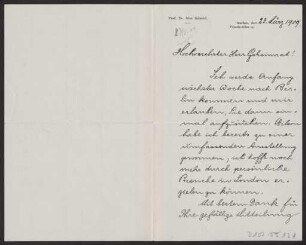 Prof. Dr. Max Schmid
Aachen, den 23. März 1909
Hochverehrter Herr Geheimrat!
Ich werde Anfang
nächster Woche nach Ber-
lin kommen und mir
erlauben, Sie dann ein-
mal aufzusuchen.
habe ich bereits zu einer
umfassenden Ausstellung
gewonnen, ich hoffe noch
mehr durch persönliche
in London er-
zu können.
Mit bestem Dank für
Ihre gefällige